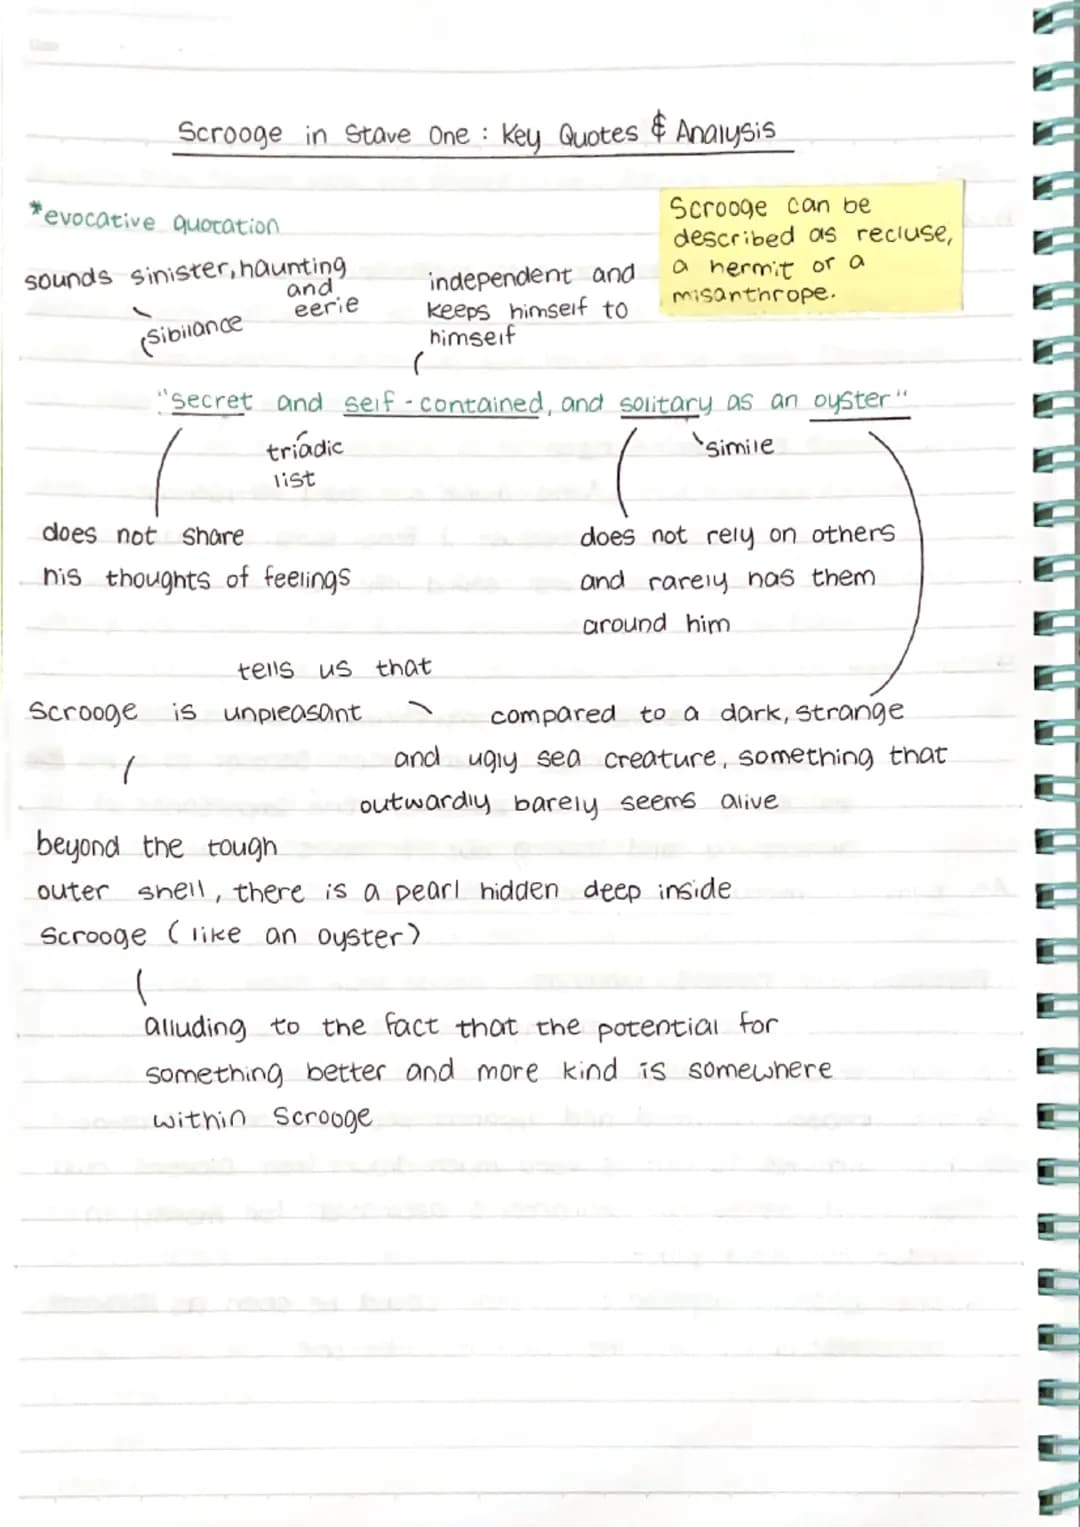 Scrooge in Stave One : Key Quotes & Analysis
*evocative quotation
Scrooge can be
described as recluse,
a hermit or a
misanthrope.
sounds sinister, haunting
and
eerie
sibilance
independent and
keeps himself to
himself
"secret and self-contained, and solitary as an oyster"
triadic
list
simile
does not share
his thoughts of feelings
does not rely on others
and rarely has them
around him
tells us that
Scrooge is unpleasant
compared to a dark, strange
and ugly sea creature, something that
outwardly barely seems alive
beyond the tough
outer shell, there is a pearl hidden deep inside
Scrooge (like an oyster)
alluding to the fact that the potential for
something better and more kind is somewhere
within Scrooge